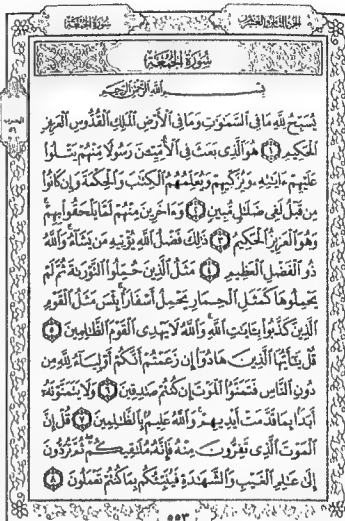 الجزء الثامن والعشرون
سورة الجمعة
سُورَةُ الْجُمُعَةِ
بِسْمِ اللَّهِ الرَّحْمَٰنِ الرَّحِيمِ
يُسَبِّحُ لِلَّهِ مَا فِي السَّمَٰوَٰتِ وَمَا فِي الْأَرْضِ الْمَلِكِ الْقُدُّوسِ الْعَزِيزِ
الْحَكِيمِ ۝١ هُوَ الَّذِي بَعَثَ فِي الْأُمِّيِّـۧنَ رَسُولًا مِّنْهُمْ يَتْلُوا
عَلَيْهِمْ ءَايَٰتِهِ وَيُزَكِّيهِمْ وَيُعَلِّمُهُمُ الْكِتَٰبَ وَالْحِكْمَةَ وَإِن كَانُوا
مِن قَبْلُ لَفِي ضَلَٰلٍ مُّبِينٍ ۝٢ وَءَاخَرِينَ مِنْهُمْ لَمَّا يَلْحَقُوا بِهِمْ
وَهُوَ الْعَزِيزُ الْحَكِيمُ ۝٣ ذَٰلِكَ فَضْلُ اللَّهِ يُؤْتِيهِ مَن يَشَاءُ وَاللَّهُ
ذُو الْفَضْلِ الْعَظِيمِ ۝٤ مَثَلُ الَّذِينَ حُمِّلُوا التَّوْرَىٰةَ ثُمَّ لَمْ
يَحْمِلُوهَا كَمَثَلِ الْحِمَارِ يَحْمِلُ أَسْفَارًا بِئْسَ مَثَلُ الْقَوْمِ
الَّذِينَ كَذَّبُوا بِـَٔايَٰتِ اللَّهِ وَاللَّهُ لَا يَهْدِي الْقَوْمَ الظَّٰلِمِينَ ۝٥
قُلْ يَٰأَيُّهَا الَّذِينَ هَادُوا إِن زَعَمْتُمْ أَنَّكُمْ أَوْلِيَاءُ لِلَّهِ مِن
دُونِ النَّاسِ فَتَمَنَّوُا الْمَوْتَ إِن كُنتُمْ صَٰدِقِينَ ۝٦ وَلَا يَتَمَنَّوْنَهُ
أَبَدًا بِمَا قَدَّمَتْ أَيْدِيهِمْ وَاللَّهُ عَلِيمٌ بِالظَّٰلِمِينَ ۝٧ قُلْ إِنَّ
الْمَوْتَ الَّذِي تَفِرُّونَ مِنْهُ فَإِنَّهُ مُلَٰقِيكُمْ ثُمَّ تُرَدُّونَ
إِلَىٰ عَٰلِمِ الْغَيْبِ وَالشَّهَٰدَةِ فَيُنَبِّئُكُم بِمَا كُنتُمْ تَعْمَلُونَ ۝٨
الحزب
٥٦
٥٥٣